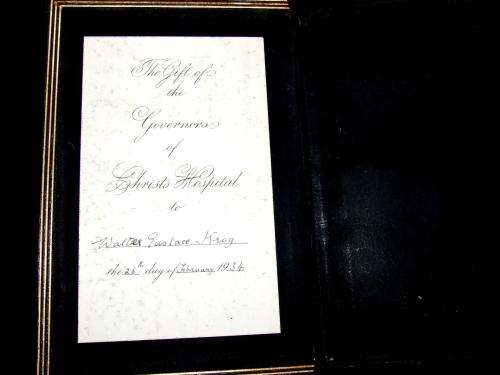 The Gift of
the
Governors
of
Christs Hospital
to
Walter Eustace Krog
the 26th day of February 1934